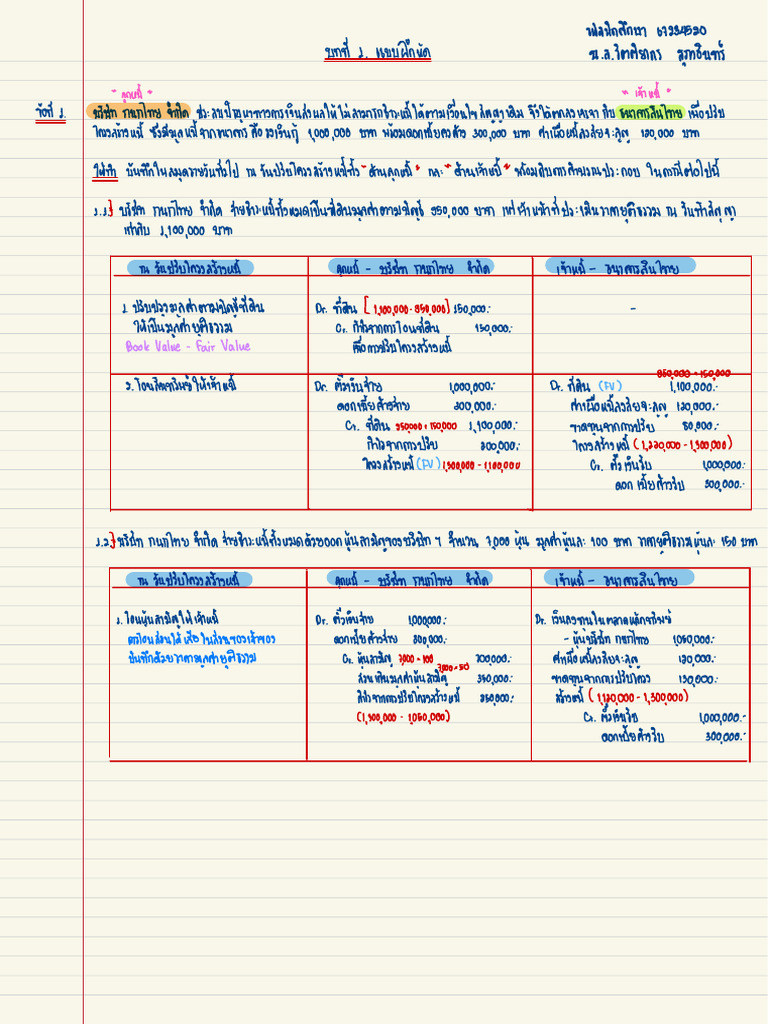 รหัสนักศึกษา 67234520
บทที่ 1. แบบฝึกหัด
น.ส.
"ลูกหนี้"
"เจ้าหนี้"
ข้อที่ 1. บริษัท กนกไทย จำกัด ประสบปัญหาทางการเงินส่งผลให้ไม่สามารถชำระหนี้ได้ตามเงื่อนไขสัญญาเดิม จึงได้ตกลงเจรจา กับ ธนาคารสินไทย เพื่อปรับ
โครงสร้างหนี้ ซึ่งมีมูลหนี้จากธนาคาร คือ เงินกู้ 1,000,000 บาท พร้อมดอกเบี้ยค้าง 300,000 บาท ค่าเผื่อหนี้สงสัยจะสูญ 120,000 บาท
ให้ทำ บันทึกในสมุดรายวันทั่วไป ณ วันปรับโครงสร้างหนี้ทั้ง "ด้านลูกหนี้" และ "ด้านเจ้าหนี้" พร้อมแสดงการคำนวณประกอบ ในกรณีต่อไปนี้
1.1) บริษัท กนกไทย จำกัด จ่ายชำระหนี้ทั้งหมดเป็นที่ดินมูลค่าตามบัญชี 950,000 บาท แต่เจ้าหน้าที่ประเมินราคายุติธรรม ณ วันทำสัญญา
เท่ากับ 1,100,000 บาท
ณ วันปรับโครงสร้างหนี้ ลูกหนี้ - บริษัท กนกไทย จำกัด เจ้าหนี้ - ธนาคารสินไทย
1. ปรับปรุงมูลค่าตามบัญชีที่ดิน Dr. ที่ดิน [1,100,000 - 950,000] 150,000.- -
ให้เป็นมูลค่ายุติธรรม Cr. กำไรจากการโอนที่ดิน 150,000.-
Book Value - Fair Value เพื่อการปรับโครงสร้างหนี้
950,000 + 150,000
2. โอนสินทรัพย์ให้เจ้าหนี้ Dr. ตั๋วเงินจ่าย 1,000,000.- Dr. ที่ดิน (FV) 1,100,000.-
ดอกเบี้ยค้างจ่าย 300,000.- ค่าเผื่อหนี้สงสัยจะสูญ 120,000.-
Cr. ที่ดิน 950,000 + 150,000 1,100,000.- ขาดทุนจากการปรับ 80,000.-
กำไรจากการปรับ 200,000.- โครงสร้างหนี้ (1,220,000 - 1,300,000)
โครงสร้างหนี้ (FV) 1,300,000 - 1,100,000 Cr. ตั๋วเงินรับ 1,000,000.-
ดอกเบี้ยค้างรับ 300,000.-
1.2) บริษัท กนกไทย จำกัด จ่ายชำระหนี้ทั้งหมดด้วยออกหุ้นสามัญของบริษัท ฯ จำนวน 7,000 หุ้น มูลค่าหุ้นละ 100 บาท ราคายุติธรรมหุ้นละ 150 บาท
ณ วันปรับโครงสร้างหนี้ ลูกหนี้ - บริษัท กนกไทย จำกัด เจ้าหนี้ - ธนาคารสินไทย
1. โอนหุ้นสามัญให้เจ้าหนี้ Dr. ตั๋วเงินจ่าย 1,000,000.- Dr. เงินลงทุนในตลาดหลักทรัพย์
ดอกเบี้ยค้างจ่าย 300,000.- - หุ้นบริษัท กนกไทย 1,050,000.-
บันทึกด้วยราคามูลค่ายุติธรรม Cr. หุ้นสามัญ 7,000 × 100 700,000.- ค่าเผื่อหนี้สงสัยจะสูญ 120,000.-
7,000 × 50
ส่วนเกินมูลค่าหุ้นสามัญ 350,000.- ขาดทุนจากการปรับโครง 130,000.-
กำไรจากการปรับโครงสร้างหนี้ 250,000.- สร้างหนี้ (1,170,000 - 1,300,000)
(1,300,000 - 1,050,000) Cr. ตั๋วเงินรับ 1,000,000.-
ดอกเบี้ยค้างรับ 300,000.-